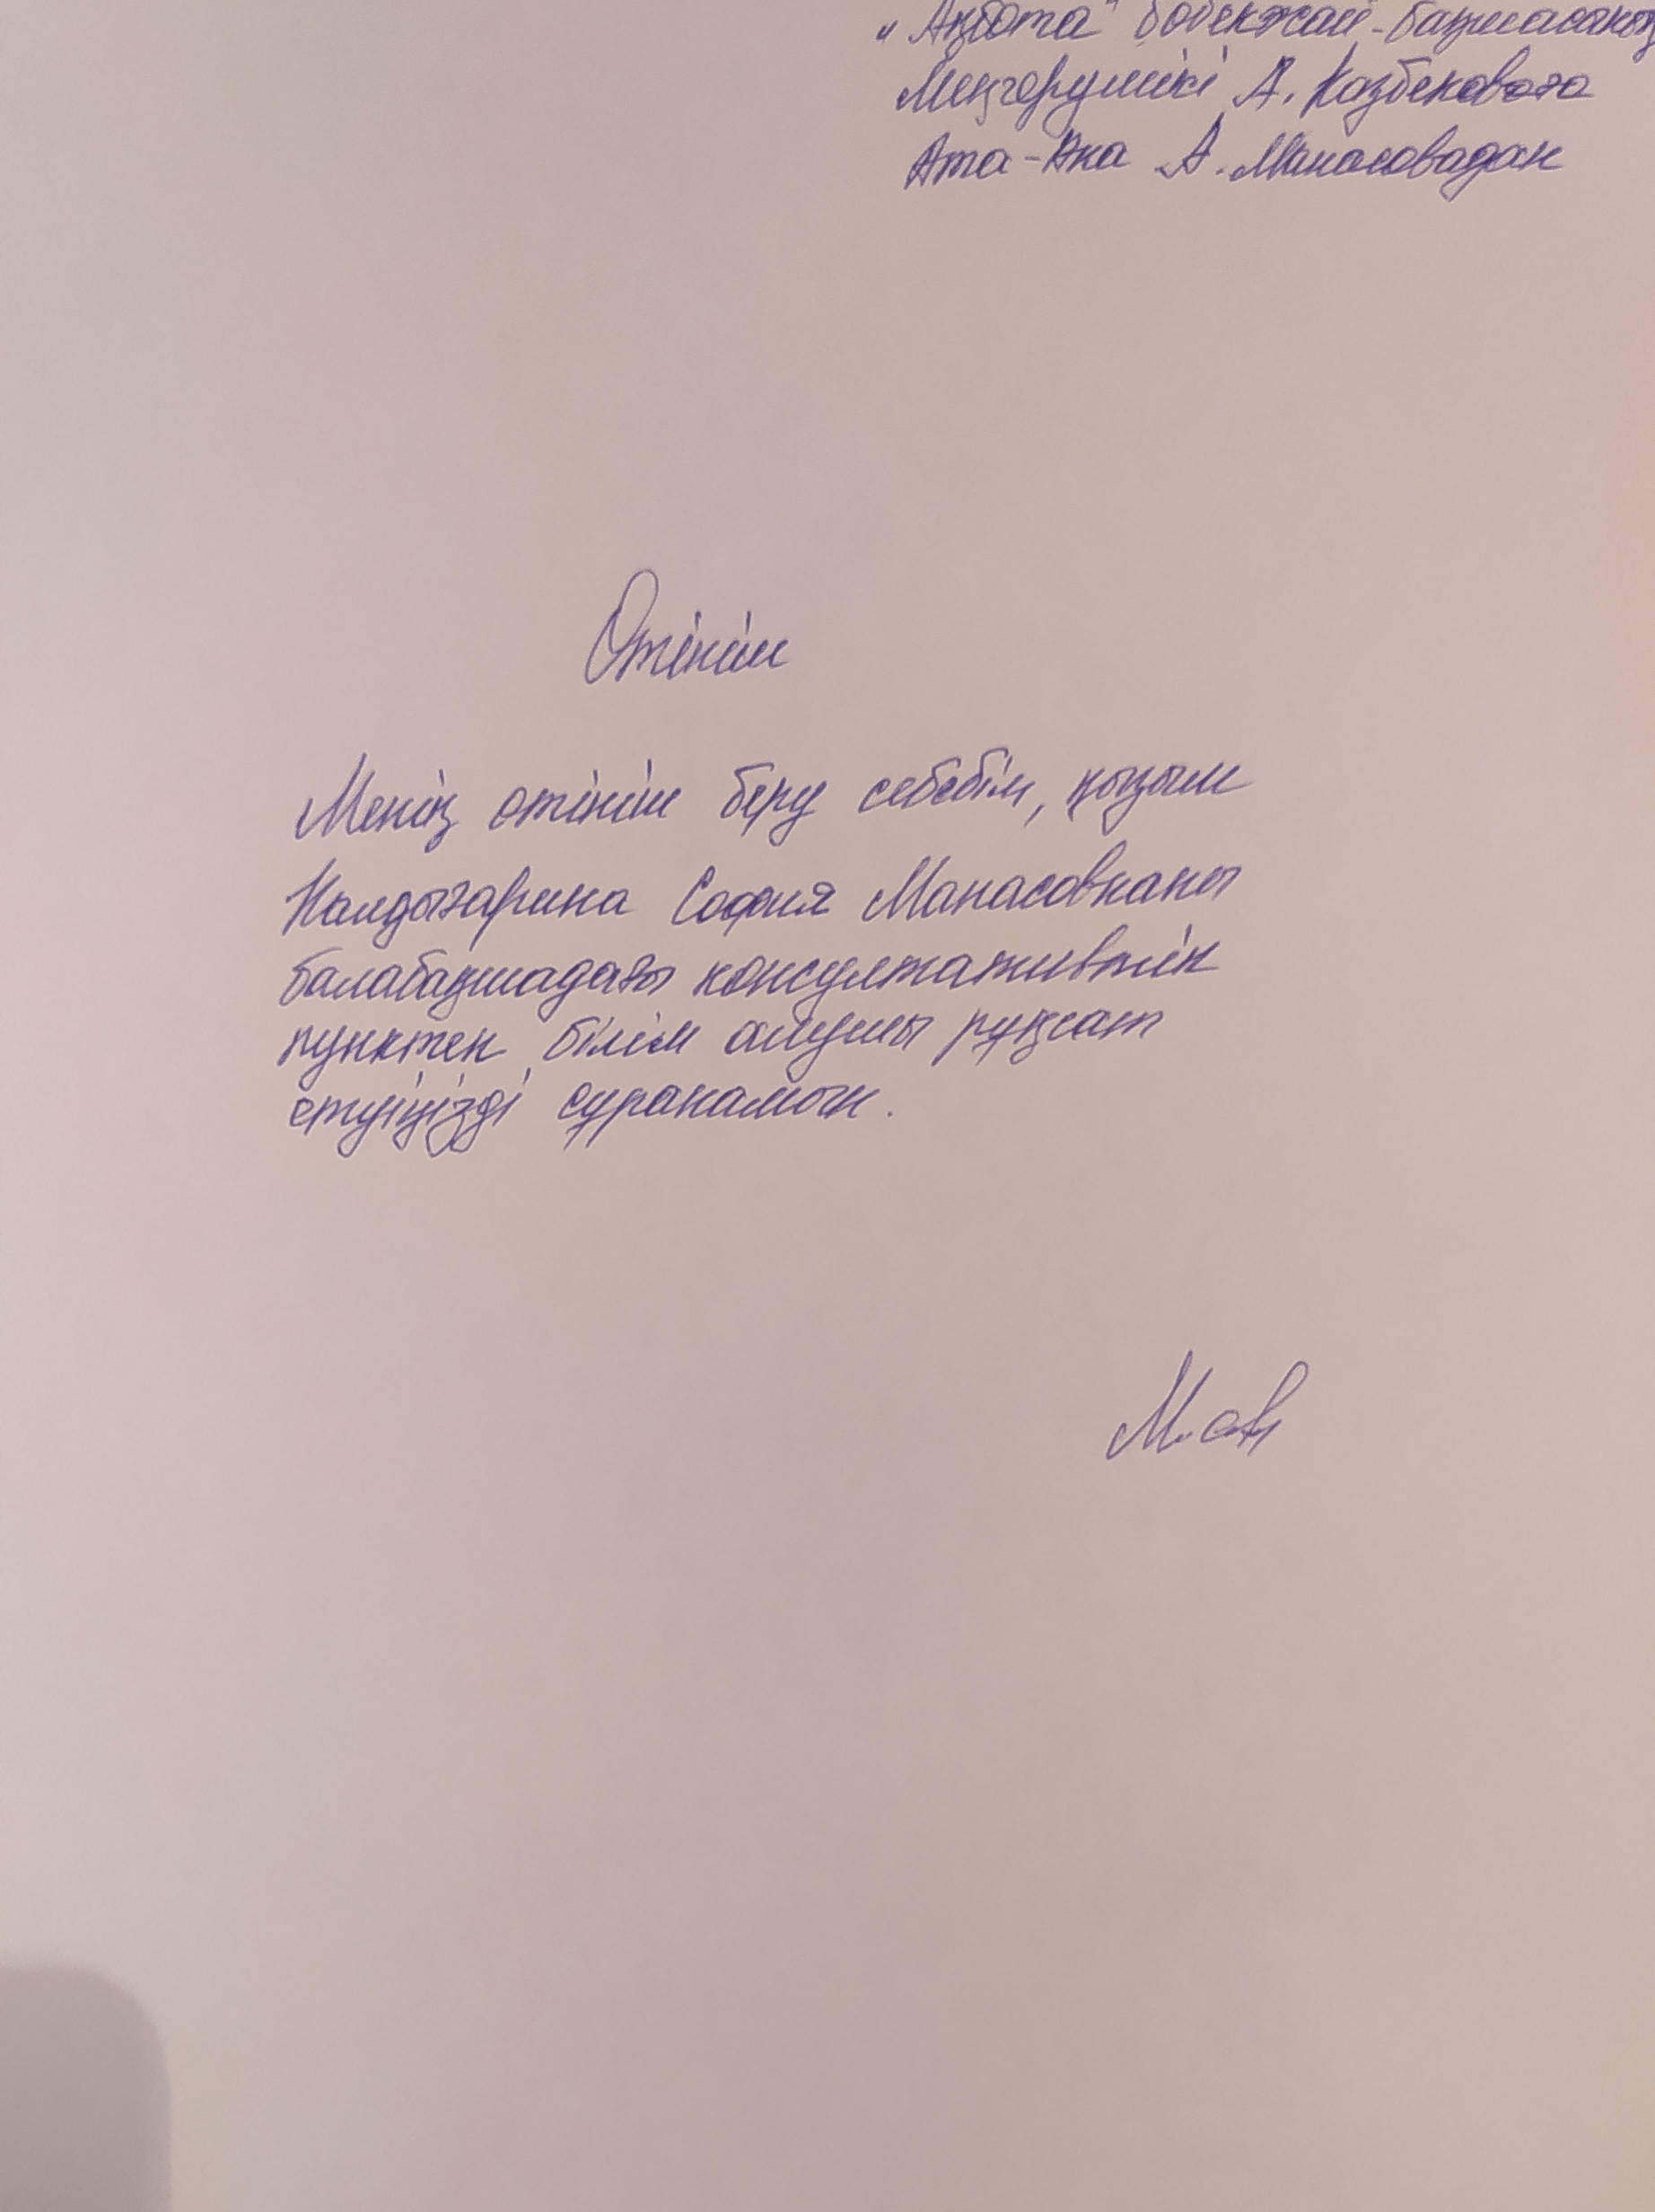 "Ақбота" бөбекжай-бақшасының
Меңгерушісі А. Казбековаға
Ата-Ана А. Манасовадан
Өтініш
Менің өтініш беру себебім, қызым
Калдыгарина София Манасовнаны
балабақшадағы консультативтік
пунктен білім алуына рұқсат
етуіңізді сұранамын.